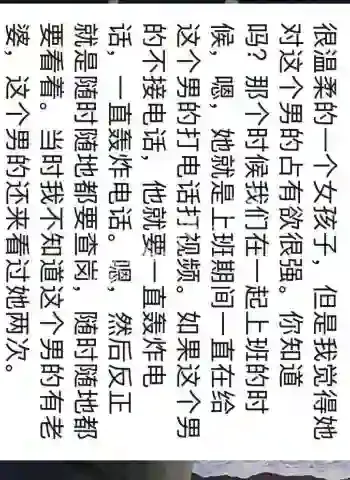 很温柔的一个女孩子，但是我觉得她
对这个男的占有欲很强。你知道
吗？那个时候我们在一起上班的时
候，嗯，她就是上班期间一直在给
这个男的打电话打视频。如果这个男
的不接电话，他就要一直轰炸电
话，一直轰炸电话。嗯，然后反正
就是随时随地都要查岗，随时随地都
要看着。当时我不知道这个男的有老
婆，这个男的还来看过她两次。